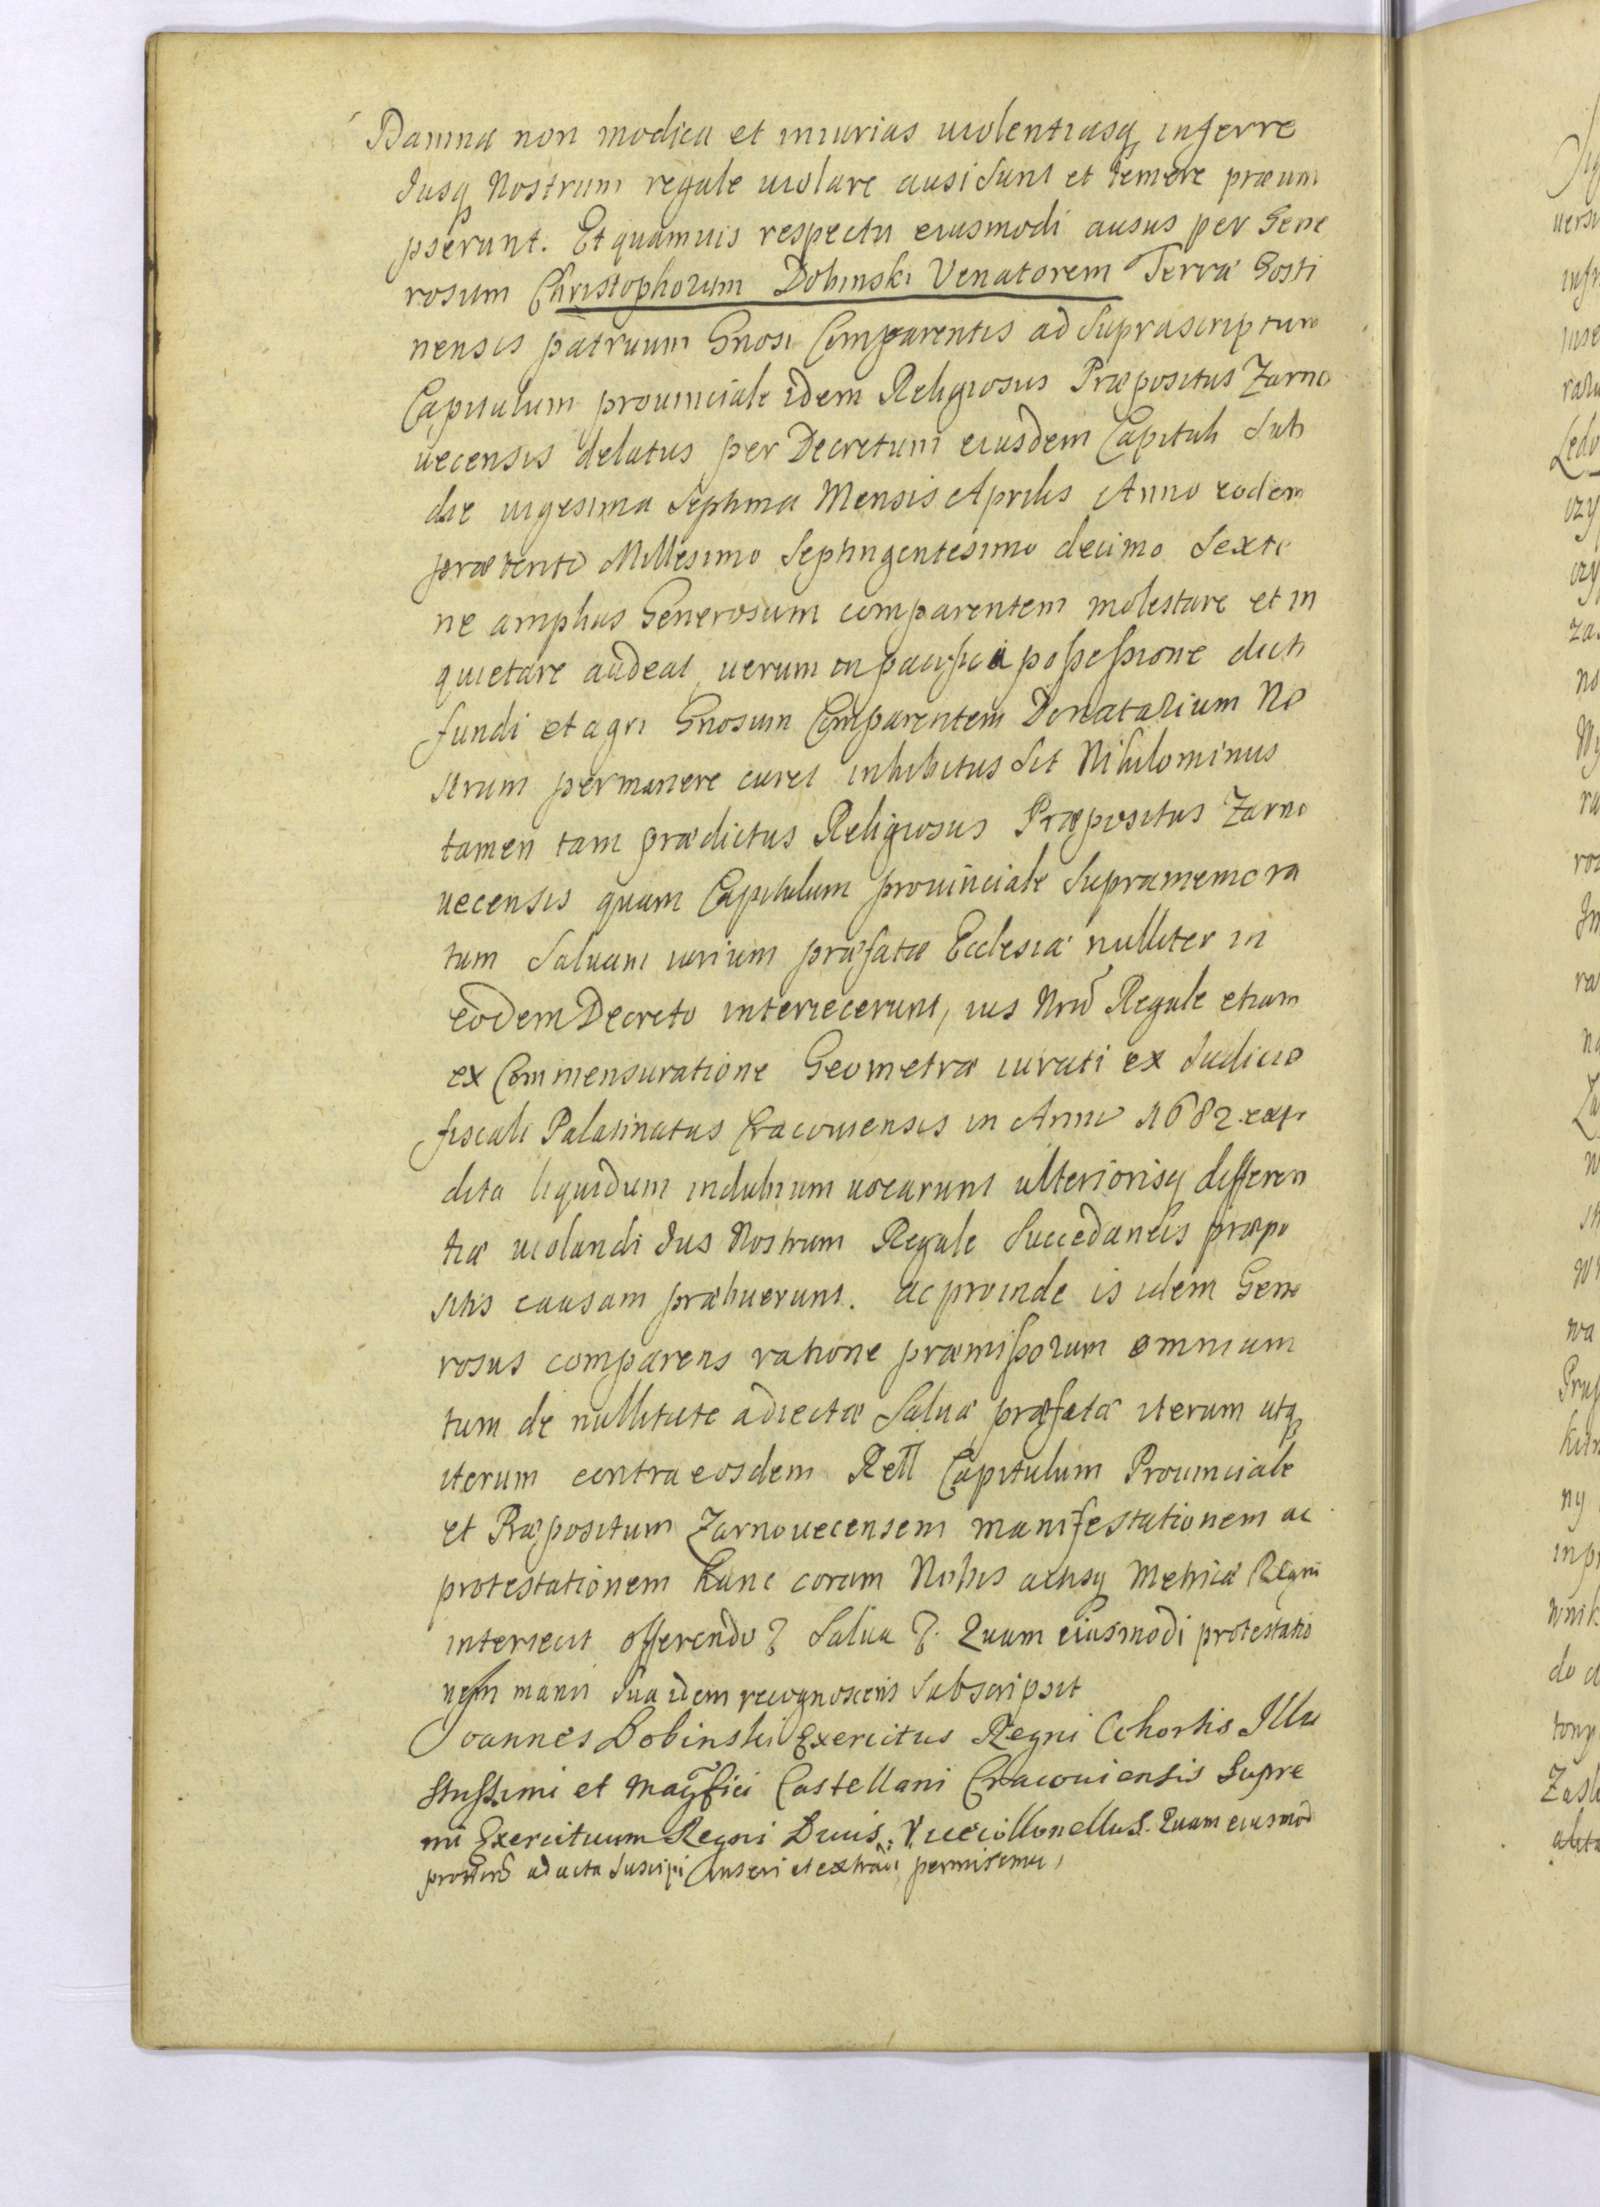 Damna non modica et iniurias uiolentiasq inferre
Jusq Nostrum regale uiolare ausi sunt et temere præsum
pserunt. Et quamuis respectu eiusmodi ausus per Gene
rosum Christophorum Dobinski Venatorem Terræ Gosti
nensis patruum Gnosi Comparentis ad Suprascriptum
Capitulum prouinciale idem Religiosus Præpositus Zarno
uecensis delatus per Decretum eiusdem Capituli Sub
die uigesima Septima Mensis Aprilis Anno eodem
præsenti Millesimo Septingentesimo decimo Sexto
ne amplius Generosum comparentem molestare et in
quietare audeat, uerum in pacifica possessione dicti
fundi et agri Gnosum Comparentem Donatarium No
strum permanere curet inhibitus sit Nihilominus
tamen tam prædictus Religiosus Præpositus Zarno
uecensis quam Capitulum prouinciale Supramemora
tum Saluam iurium præfatæ Ecclesiæ nulliter in
eodem Decreto interiecerunt, ius Nrum Regale etiam
ex Commensuratione Geometræ iurati ex Judicio
fiscali Palatinatus Cracouiensis in Anno 1682 expe
dita liquidum indubium uocarunt ulteriorisq differen
tiæ uiolandi Jus Nostrum Regale Succedaneis præpo
sitis causam præbuerunt. ac proinde is idem Gene
rosus comparens ratione præmissorum omnium
tum de nullitate adiectæ Saluæ præfatæ iterum atq
iterum contra eosdem Rell Capitulum Prouinciale
et Præpositum Zarnouecensem manifestationem ac
protestationem hanc coram Nobis actisq Metricæ Regni
interiecit offerendo & Salua &. Quam eiusmodi protestatio
nem manu sua idem recognoscens Subscripsit
Joannes Dobinski Exercitus Regni Cohortis Illu
strissimi et Magfici Castellani Cracouiensis Supre
mi Exercituum Regni Ducis Vicecollonellus. Quam eiusmod
ad acta Suscipi inseri et extradi permisimus,